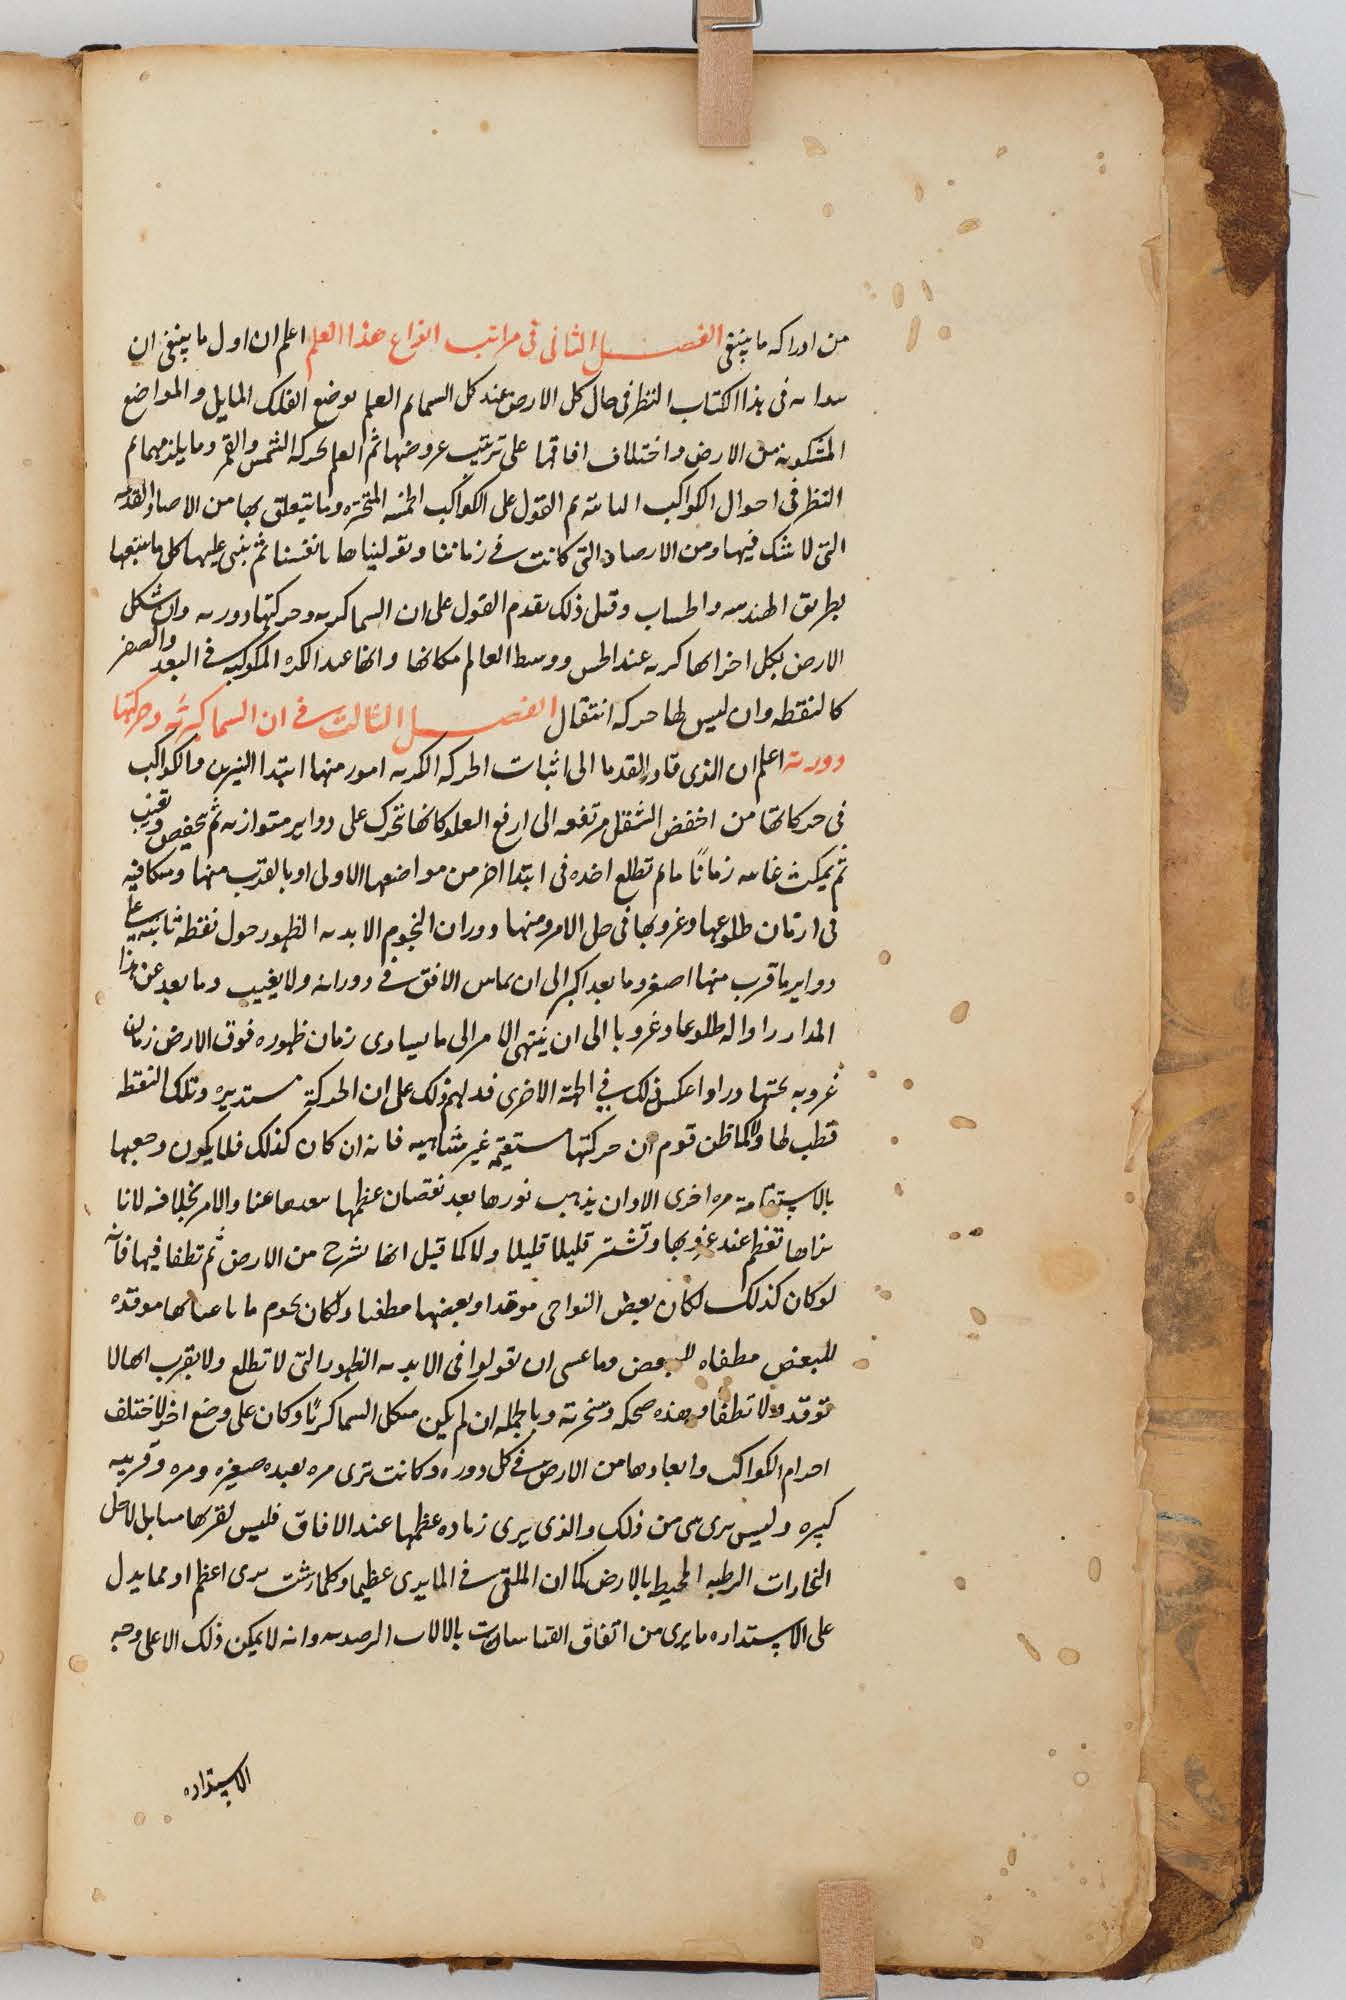 من ادراكه ما ينبغى الفصل الثانى فى مراتب انواع هذا العلم اعلم ان اول ما ينبغى ان
فى هذا الكتاب النظر فى حال كل الارض عند كل السما ثم العلم بوضع الفلك المايل والمواضع
المسكونه من الارض واختلاف افاقها على ترتيب عروضها ثم العلم بحركه الشمس والقمر وما يلزمهما ثم
النظر فى احوال الكواكب الثابته ثم القول على الكواكب الخمسه المتحيره وما يتعلق بها من الارصاد القديمه
التى لا شك فيها ومن الارصاد التى كانت فى زماننا وتوليناها بانفسنا ثم نبنى عليها كل ما يتبعها
بطريق الهندسه والحساب وقبل ذلك يقدم القول على ان السما كريه وحركتها دوريه وان شكل
الارض بكل اجزائها كريه عند الحس ووسط العالم مكانها وانها عند الكره المكوكبه فى البعد والصغر
كالنقطه وان ليس لها حركه انتقال الفصل الثالث فى ان السما كريه وحركتها
دوريه اعلم ان الذى قاد القدما الى اثبات الحركه الكريه امور منها ابتدا النيرين والكواكب
فى حركاتها من اخفض الشقل مرتفعه الى ارفع العلو كانها تتحرك على دواير متوازيه ثم تنخفض وتغيب
ثم يمكث غايبه زمانا ما ثم تطلع اخذه فى ابتدا اخر من مواضعها الاولى او بالقرب منها ومتكافيه
فى ازمان طلوعها وغروبها فى جل الامر ومنها دوران النجوم الابديه الظهور حول نقطه ثابته على
دواير ما قرب منها اصغر وما بعد اكبر الى ان يماس الافق فى دورانه ولا يغيب وما بعد عن هذا
المدار راوا له طلوعا وغروبا الى ان ينتهى الامر الى ما يساوى زمان ظهوره فوق الارض زمان
غروبه تحتها وراوا عكس ذلك فى الجهه الاخرى فدلهم ذلك على ان الحركة مستديره وتلك النقطه
قطب لها ولا كما ظن قوم ان حركتها مستقيمه غير متناهيه فانه ان كان كذلك فلما يكون رجوعها
بالاستقامة مره اخرى الا وان يذهب نورها بعد نقصان عظمها ببعدها عنا والامر بخلافه لانا
نراها تعظم عند غروبها وتستتر قليلا قليلا ولا كما قيل انها تسرج من الارض ثم تطفا فيها فانه
لو كان كذلك لكان بعض النواحى موقدا وبعضها مطفيا ولكان نجوم ما باعيانها موقده
للبعض مطفاه للبعض وما عسى ان يقولوا فى الابديه الظهور التى لا تطلع ولا يقرب انها لا
توقد ولا تطفا وهذه ضحكه وسخريه وبالجمله ان لم يكن شكل السما كريا وكان على وضع اخر لاختلف
اجرام الكواكب وابعادها من الارض فى كل دوره وكانت ترى مره بعيده صغيره ومره وقريبه
كبيره وليس يرى شى من ذلك والذى يرى زياده عظمها عند الافاق فليس لقربها منا بل لاجل
البخارات الرطبه المحيط بالارض كما ان الملقى فى الما يرى عظيما وكلما رسب يرى اعظم او مما يدل
على الاستداره ما يرى من اتفاق القياسات بالالات الرصديه وانه لا يمكن ذلك الا على وجه
الاستداره